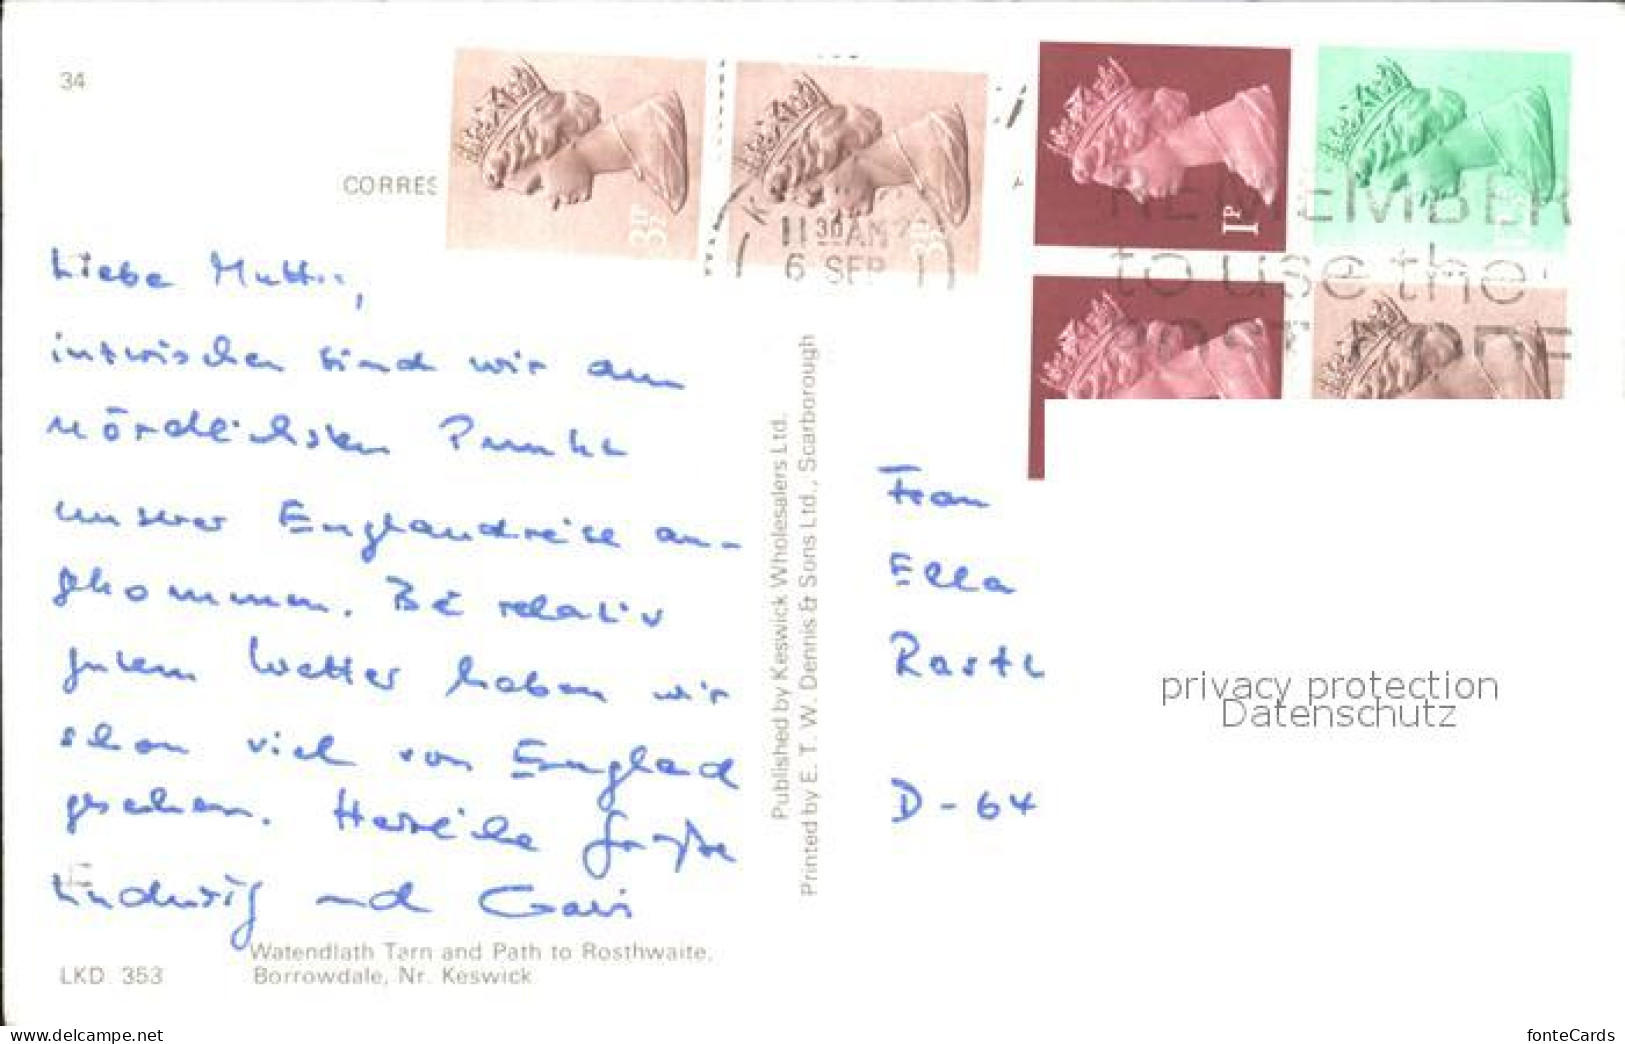 34
CORRES
3P
3P
1P
11 30 AM
6 SEP
REMEMBER
to use the
Liebe Mutti,
inzwischen sind wir am
nördlichsten Punkt
unserer Englandreise an-
gekommen. Bei relativ
gutem Wetter haben wir
schon viel von England
gesehen. Herzliche Grüße
Ludwig und
Watendlath Tarn and Path to Rosthwaite,
LKD. 353 Borrowdale, Nr. Keswick
Published by Keswick Wholesalers Ltd.
Printed by E. T. W. Dennis & Sons Ltd., Scarborough
Frau
Ella
D - 64
privacy protection
Datenschutz
www.delcampe.net
fonteCards